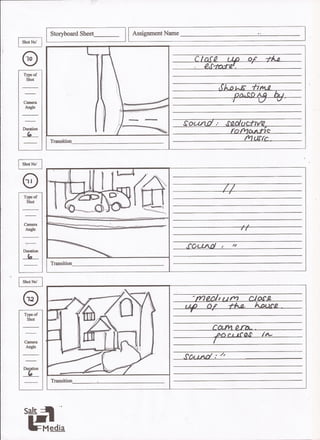 Storyboard Sheet_______ Assignment Name
Shot No'
70
Type of
Shot
Camera
Angle
Duration
6
Close up of the
estate.
Shows time
passing by.
Sound : seductive,
romantic
music.
Transition
Shot No'
71
Type of
Shot
Camera
Angle
Duration
6
//
//
Sound : "
Transition
Shot No'
72
Type of
Shot
Camera
Angle
Duration
6
"medium close
up of the house.
camera
focuses in
Sound : "
Transition
Salt
Media